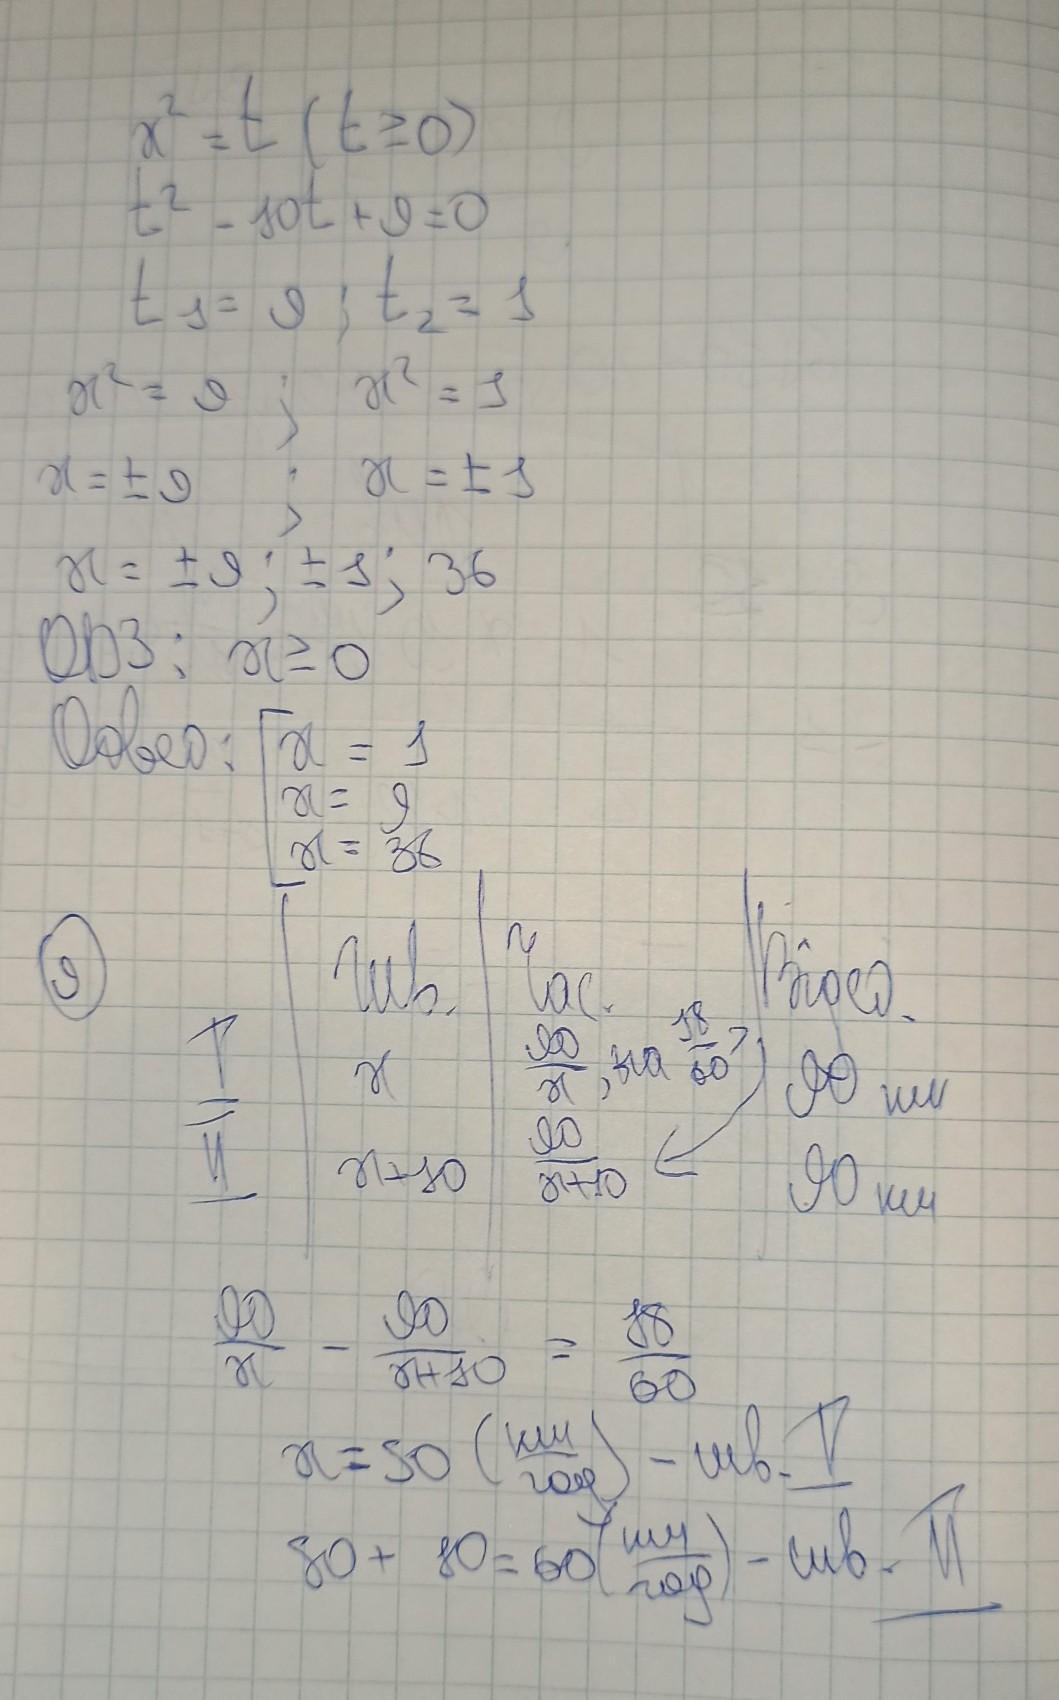 x² = t (t ≥ 0)
t² - 10t + 9 = 0
t₁ = 9 ; t₂ = 1
x² = 9 ; x² = 1
x = ± 9 ; x = ± 1
x = ± 9 ; ± 1 ; 36
ОДЗ : x ≥ 0
x = 1
x = 9
x = 36
9 | Шв. | Час. | Відст.
I | x | 90/x , на 18/60 > | 90 км
II | x+10 | 90/x+10 | 90 км
90/x - 90/x+10 = 18/60
x = 50 (км/год) - шв. I
50 + 10 = 60 (км/год) - шв. II